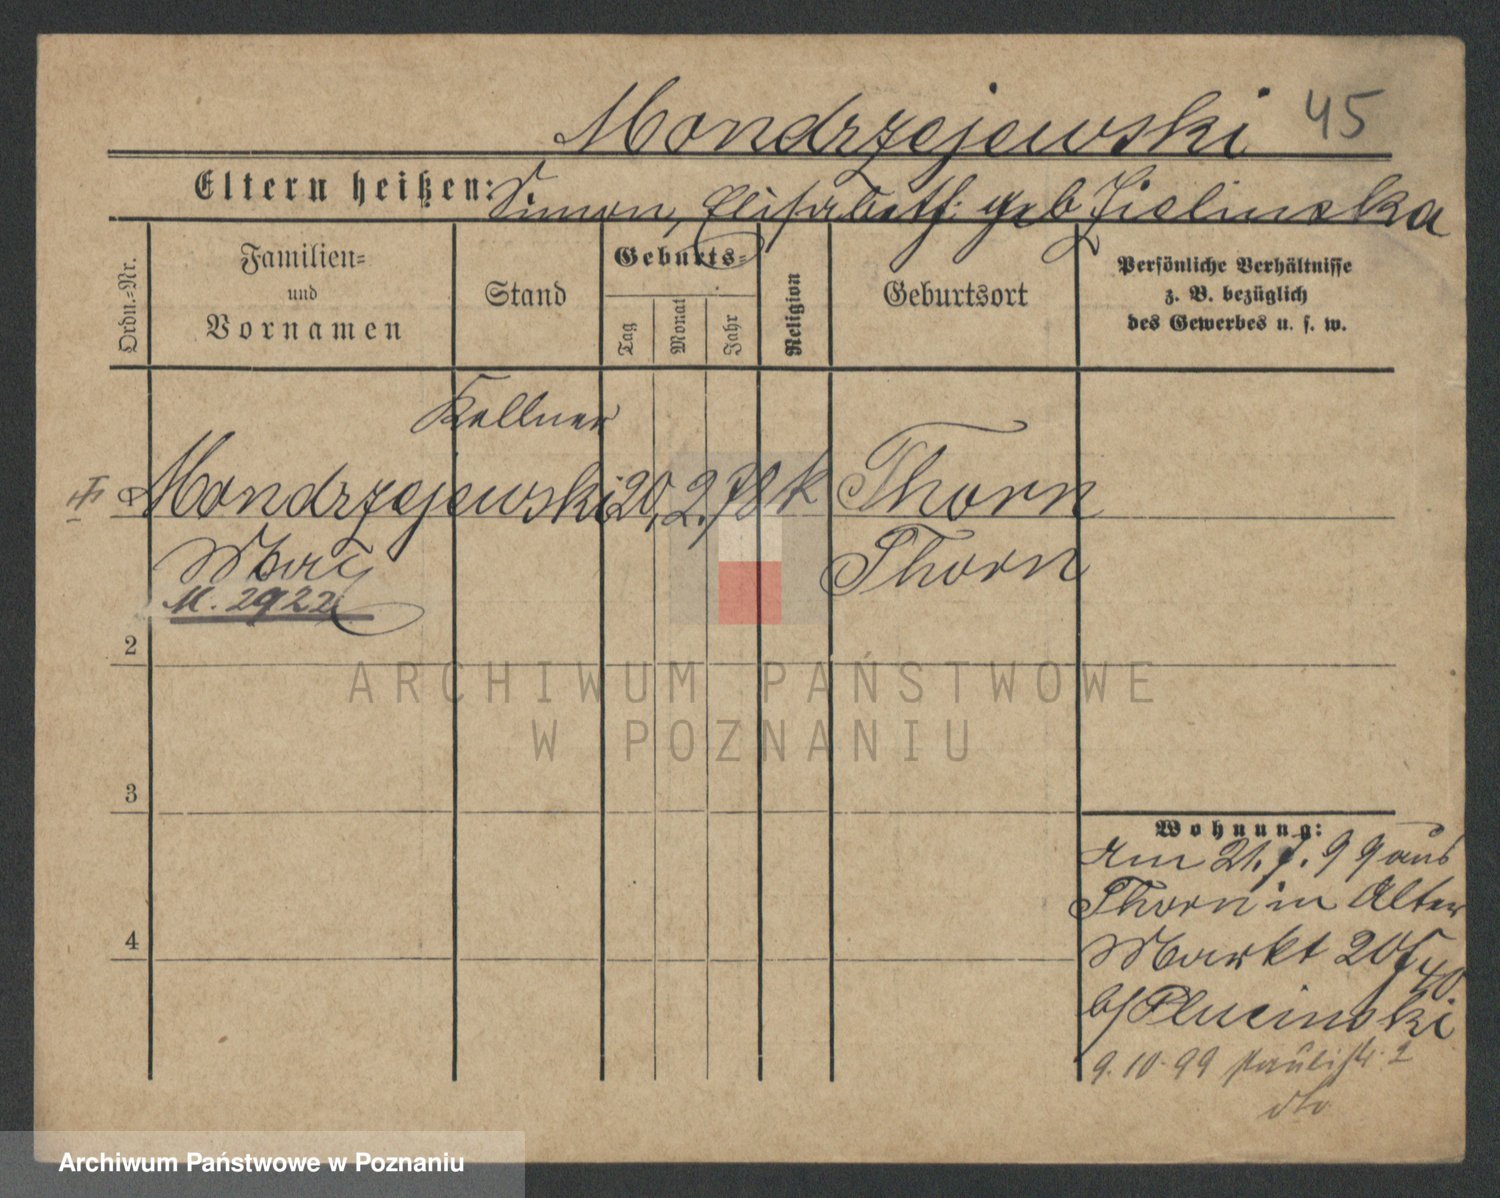 Mondrzejewski 45
Eltern heißen: Simon, Elisabeth geb Zielinska
Ordn.-Nr.
Familien-
und
Vornamen
Stand
Geburts-
Tag
Monat
Jahr
Religion
Geburtsort
Persönliche Verhältnisse
z. B. bezüglich
des Gewerbes u. s. w.
Kellner
1 Mondrzejewski 20, 2. 78 k Thorn
Thorn
M. 2922
2
ARCHIWUM PAŃSTWOWE
W POZNANIU
3
Wohnung:
Am 21. 7. 99 aus
Thorn in Alter
4
Markt 20/40
b/ Plucinski
9. 10. 99 Paulistr. 2
dto
Archiwum Państwowe w Poznaniu